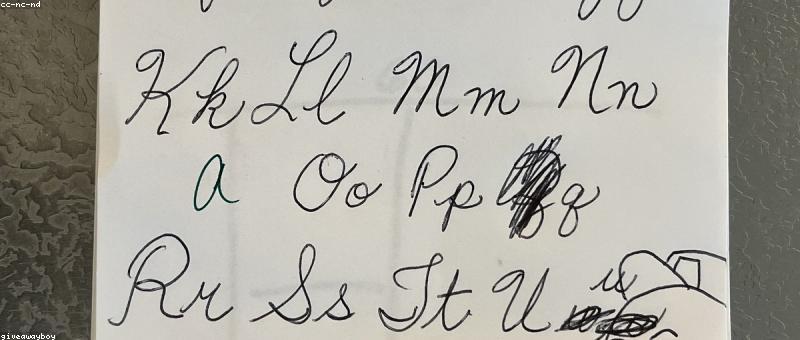 cc-nc-nd
Kk Ll Mm Nn
a Oo Pp q
Rr Ss Tt U u
giveawayboy